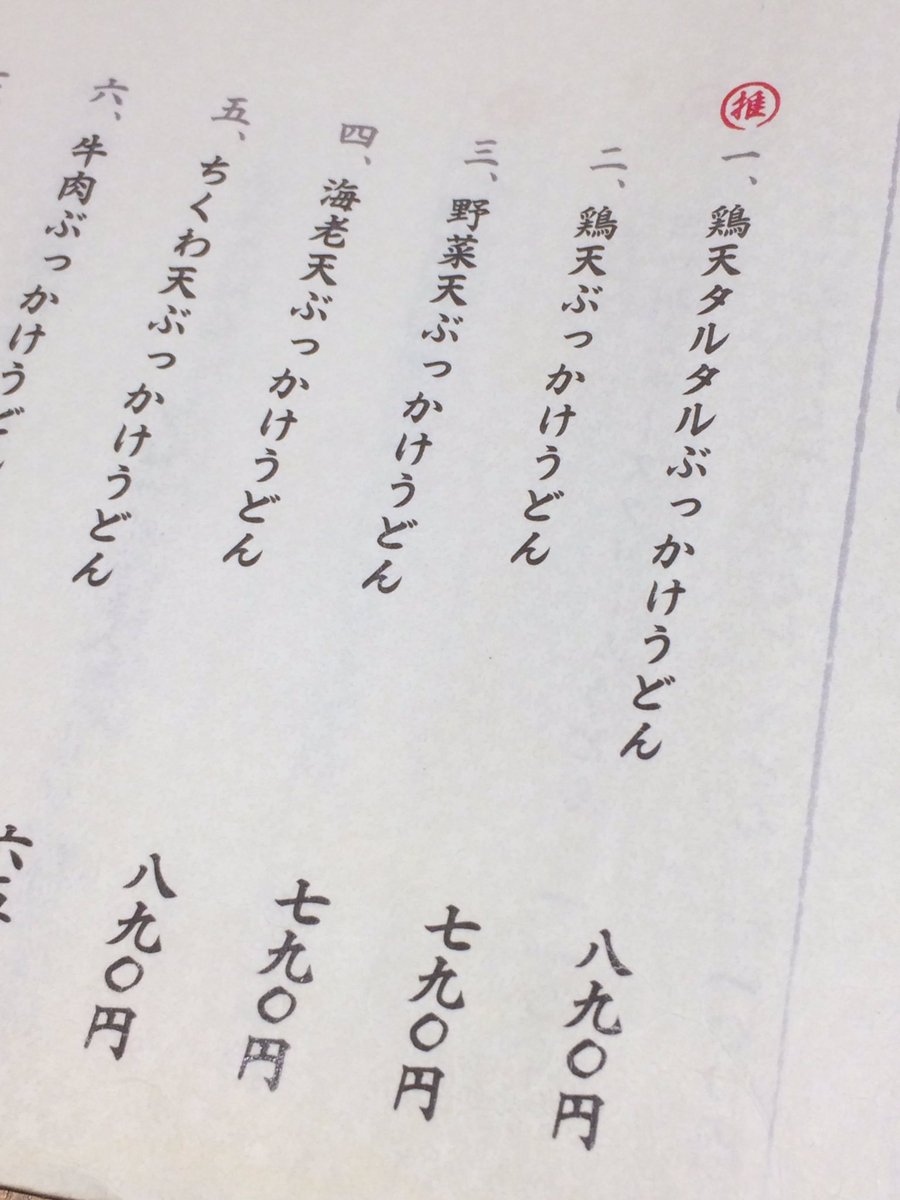 推
一、鶏天タルタルぶっかけうどん 八九〇円
二、鶏天ぶっかけうどん 七九〇円
三、野菜天ぶっかけうどん 七九〇円
四、海老天ぶっかけうどん 八九〇円
五、ちくわ天ぶっかけうどん 六
六、牛肉ぶっかけうどん